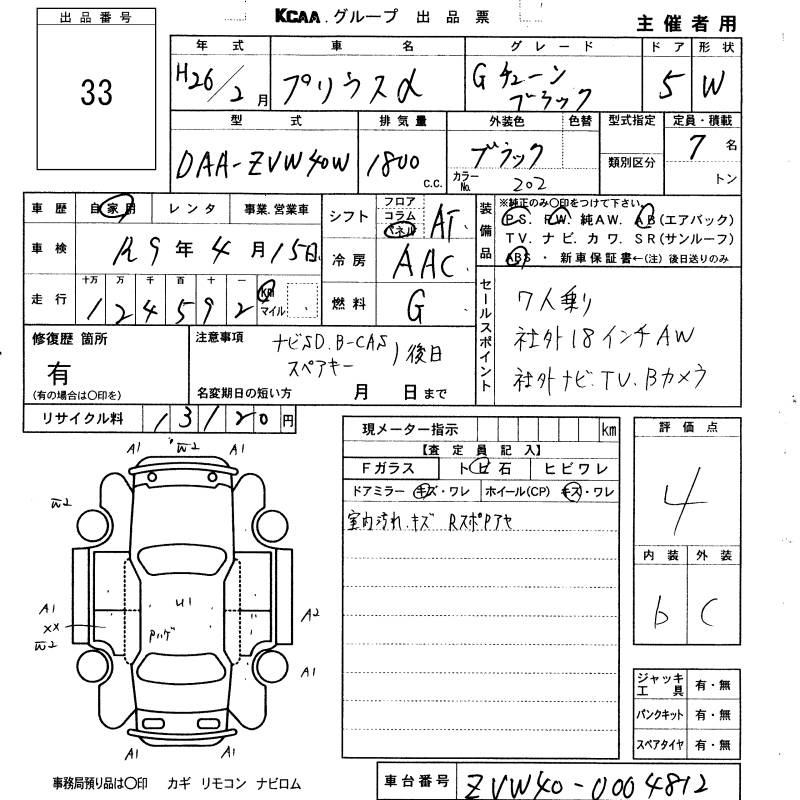 KCAA.グループ 出品票
主催者用
出品番号
33
年式 車名 グレード ドア 形状
H26/2月 プリウスα Gチューンブラック 5 W
型式 排気量 外装色 色替 型式指定 定員・積載
DAA-ZVW40W 1800 c.c. ブラック 7 名
カラーNo. 202 類別区分 トン
車歴 自家用 レンタ 事業.営業車
車検 R9年4月15日
走行 十万 万 千 百 十 一
1 2 4 5 9 2 km マイル
シフト フロア コラム パネル AT
冷房 AAC
燃料 G
装備品
※純正のみ〇印をつけて下さい。
PS. P.W. 純AW. AB(エアバック)
TV. ナビ. カワ. SR(サンルーフ)
ABS ・ 新車保証書←(注)後日送りのみ
セールスポイント
7人乗り
社外18インチAW
社外ナビ.TV.Bカメラ
修復歴 箇所
有
(有の場合は〇印を)
注意事項
ナビSD.B-CAS
スペアキー ) 後日
名変期日の短い方 月 日まで
リサイクル料 13120円
現メーター指示 km
【査定員記入】
Fガラス トビ石 ヒビワレ
ドアミラー キズ・ワレ ホイール(CP) キズ・ワレ
室内汚れ.キズ RスポPアヤ
評価点
4
内装 外装
b C
A1 W2 A1
W2
A1
XX
W2
U1
Pハゲ
A2
A1
A1 A1
ジャッキ工具 有・無
パンクキット 有・無
スペアタイヤ 有・無
事務局預り品は〇印 カギ リモコン ナビロム
車台番号 ZVW40-0004812